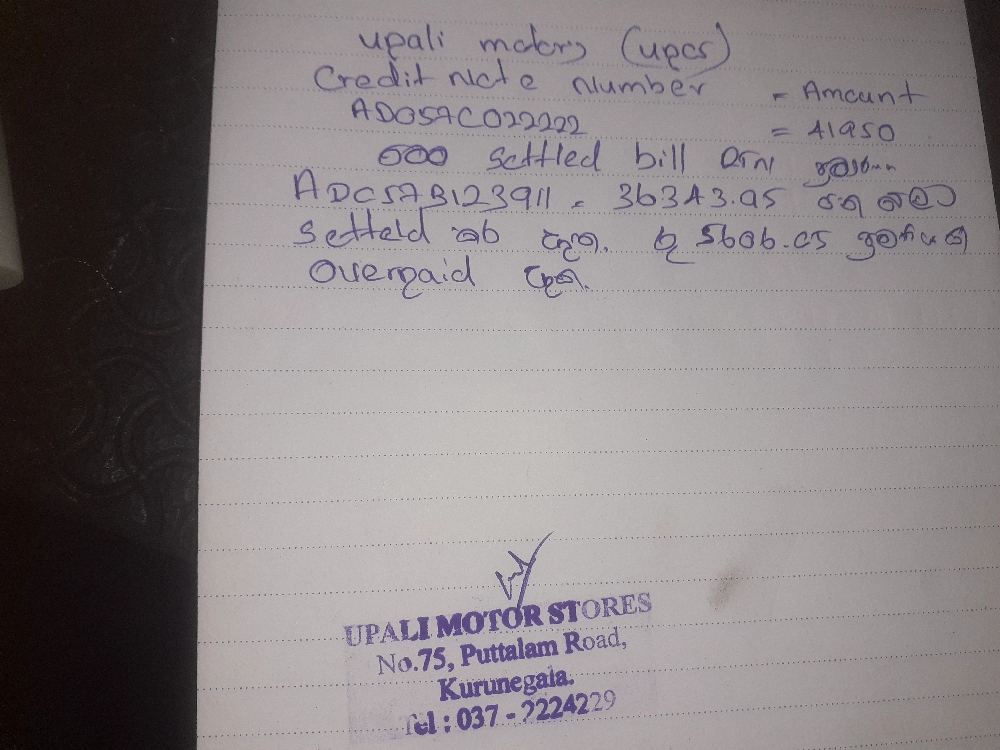 upali motors (upcs)
Credit Note Number = Amount
AD05AC022222 = 41950
මෙම settled bill එක
ADC57B123911 = 36343.95
Setteld කර දෙන්න. රු 5606.05
Overpaid දෙන්න.
UPALI MOTOR STORES
No.75, Puttalam Road,
Kurunegala.
Tel : 037 - 2224229